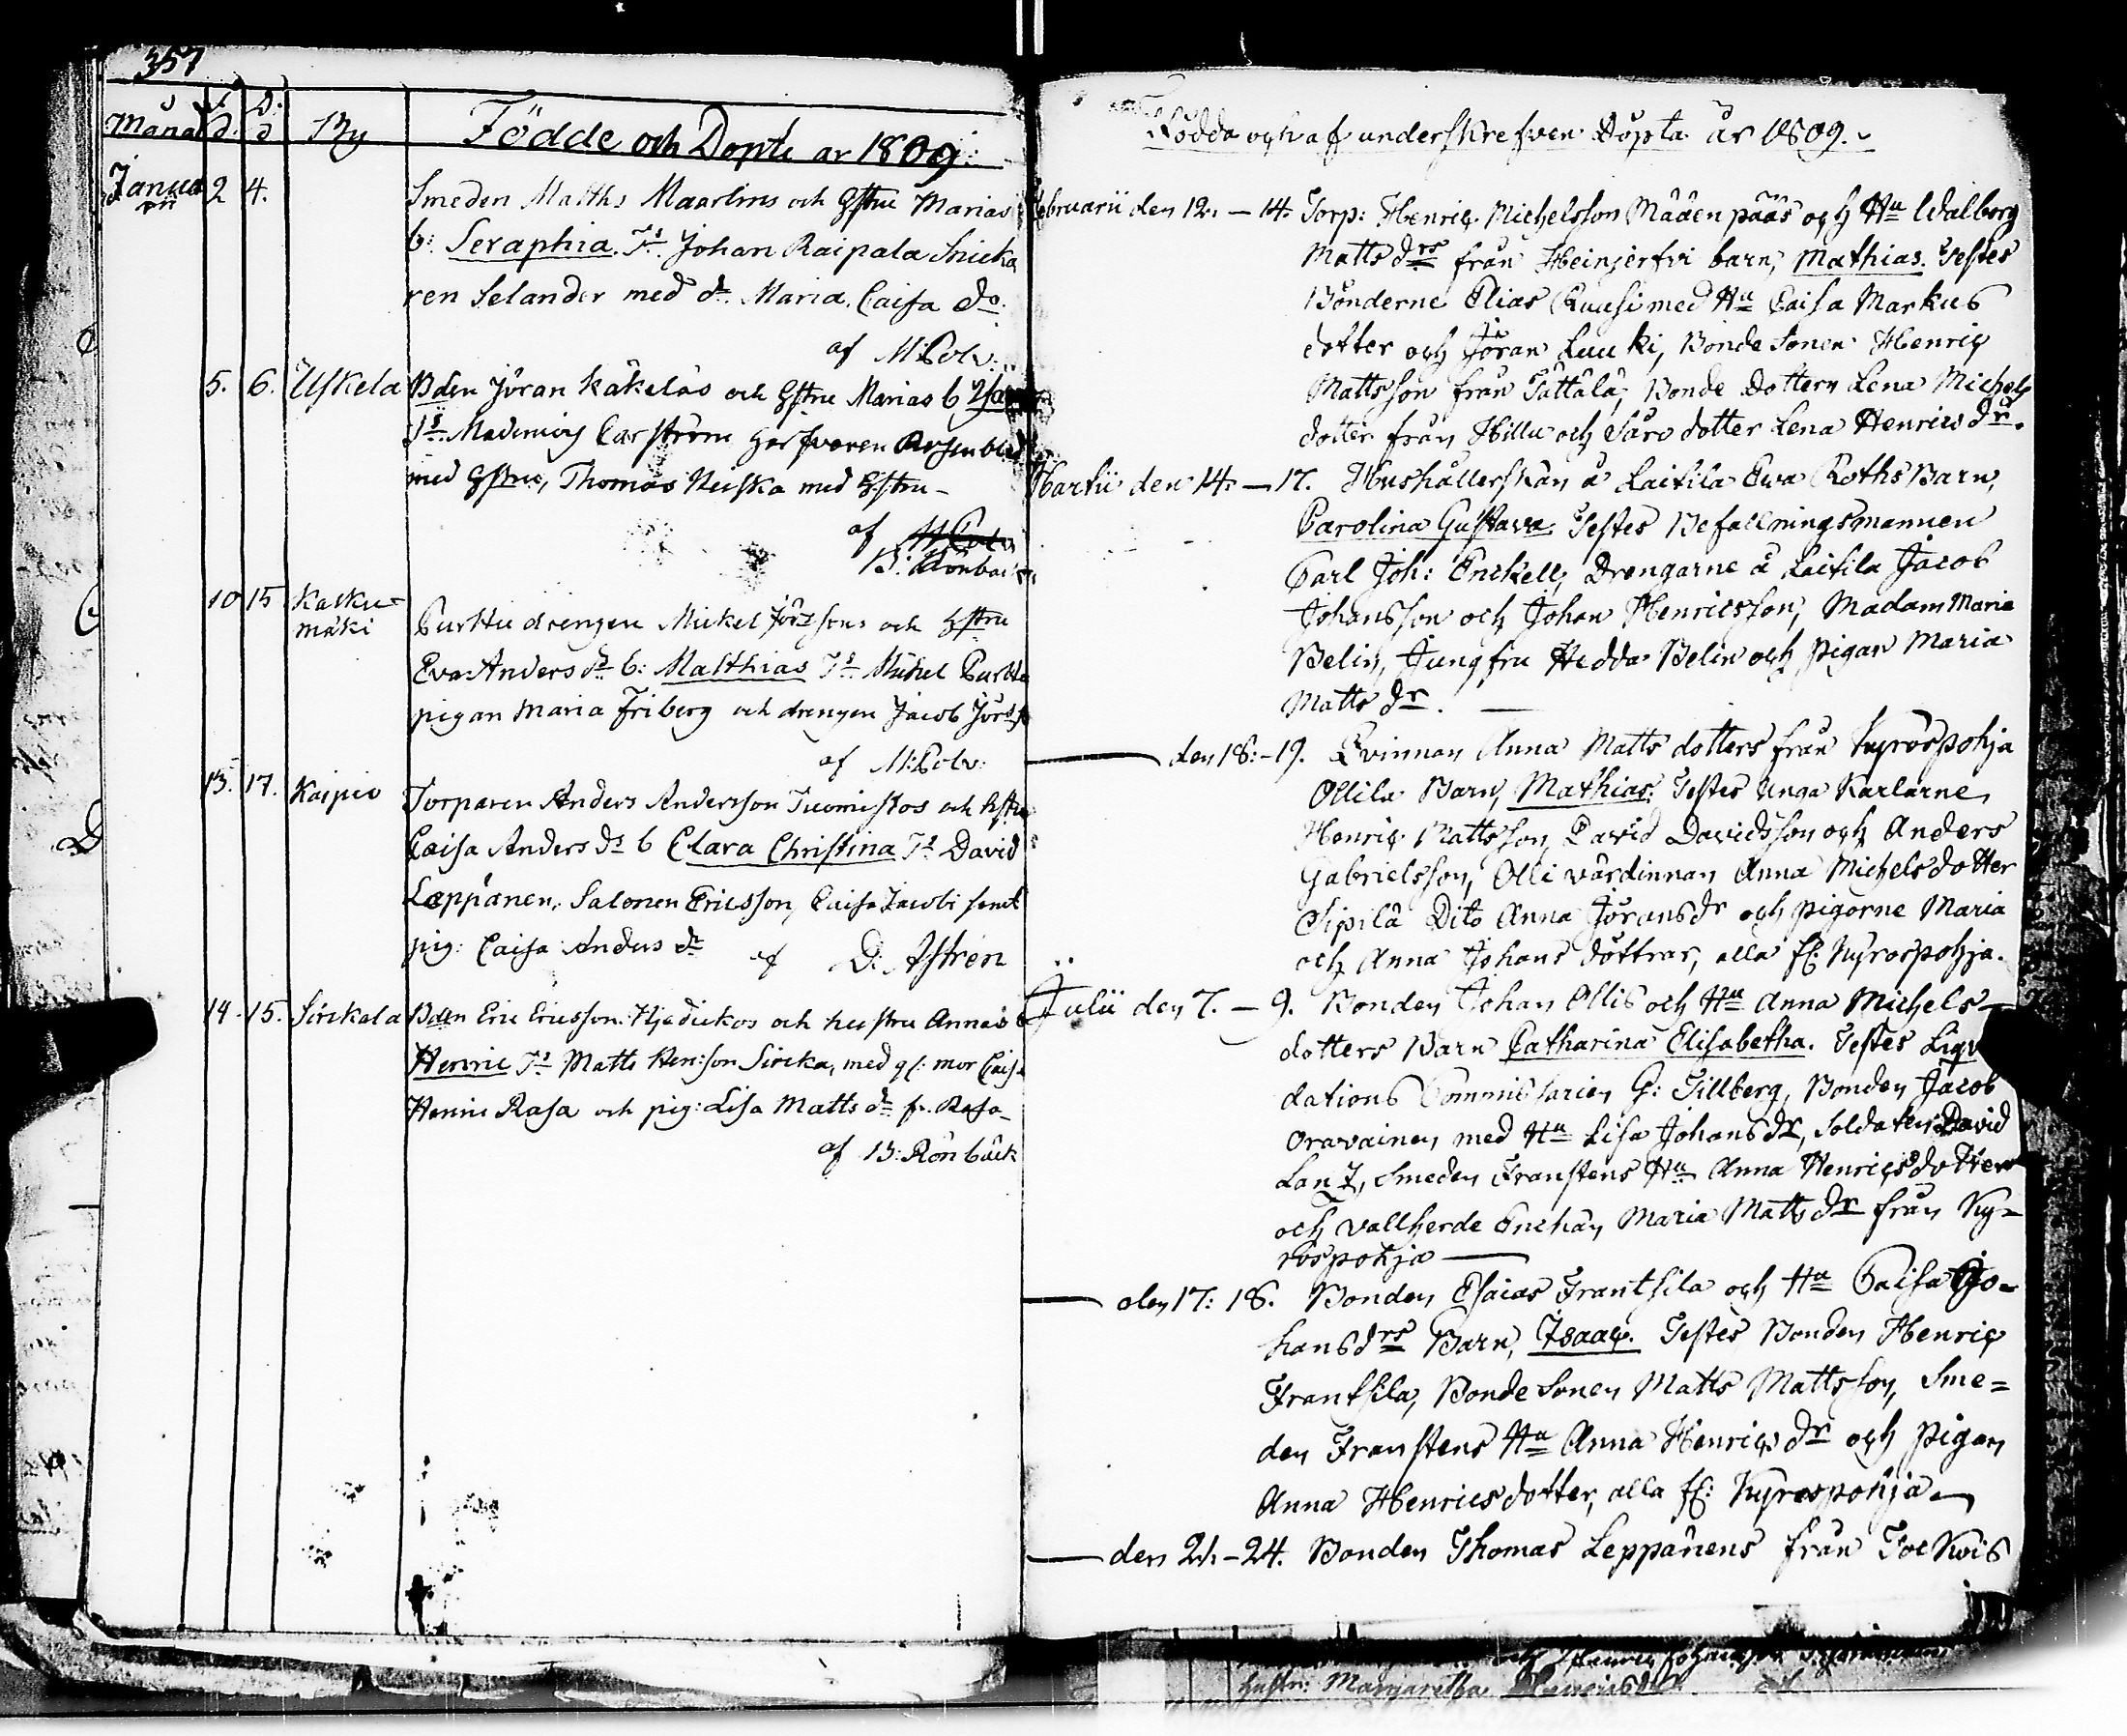 357
Månad F.d. D:d By Födde och Döpte år 1809
Januarii 2 4. Smeden Matths Maarlins och Hstru Marias
b: Seraphia. Ts Johan Raipala Snicka
ren Selander med dr. Maria. Caisa do.
af M:Polv:
5. 6. Uskela Bden Jöran Käkelas och Hstru Marias b
Ts. Carström med Hstru, Thomas Heiska med Hstru
af M Polv
B: Rönback
10 15 Kaskumäki
Purttu drengen Mickel Jörsson och Hstru
Eva Anders dr b: Matthias Ts Mickel Purttu
pigan Maria Friberg och drengen Jacob Jörss
af M:Polv:
13. 17. Kaipio Torparen Anders Andersson Tuomistos och Hstru
Caisa Anders dr b Clara Christina Ts David
Leppänen, Salomon Ericsson, Caisa Jacobs samt
pig: Caisa Anders dr af D: Astren
14. 15. Sirckala Bden Eric Ericsson Hjedickos och hustru Annas b
Henric Ts Matts Hen:son Sircka, med gl: mor Caisa
Henric Rasa och pig: Lisa Matts dr fr. Rasa
af B: Rönbäck
Födda och af underskrefven Döpta år 1809.
Februarii den 12. — 14. Torp: Henric Michelsson Määenpääs och Hu Walborg
Matts drs från Heinjerfvi barn, Mathias. Testes
Bönderne Elias Kuusi med Hu Caisa Markus
dotter och Jöran Luuki, Bonde Sonen Henric
Mattsson från Tättälä, Bonde dottern Lena Michels
dotter från Hillu och Såro dotter Lena Henrics dr.
Martii den 14. — 17. Hushållerskan å Laitila Ewa Roths Barn,
Carolina Gustava. Testes Befallningsmannen
Carl Joh: Enckell, Drengarne å Laitila Jacob
Johansson och Johan Henricsson, Madam Maria
Belin, Jungfru Hedda Belin och Pigan Maria
Matts dr. —
— den 18: - 19. Qvinnan Anna Matts dotters från Kyröspohja
Ollila Barn, Mathias. Testes Unga Karlarne,
Henric Mattsson, David Davidsson och Anders
Gabrielsson, Olli värdinnan Anna Michelsdotter
Sipilä Dito Anna Jöransdr och pigorne Maria
och Anna Johans döttrar, alla fr: Kyröspohja.
Julii den 7. — 9. Bonden Johan Ollis och Hu Anna Michels-
dotters Barn Catharina Elisabetha. Testes Liqvi
dations Commissarien G: Tillberg, Bonden Jacob
Oravainen med Hu Lisa Johansdr, Soldaten David
Lantz, Smeden Franstens Hu Anna Henricsdotter
och vallherde Enchan Maria Mattsdr från Ky-
röspohja —
— den 17: 18. Bonden Esaias Frantsila och Hu Caisa Jo-
hansdrs Barn, Isaac. Testes Bonden Henric
Frantsila, Bonde Sonen Matts Mattsson, Sme=
den Franstens Hu Anna Henrics dr och Pigan
Anna Henricsdotter, alla fr: Kyröspohja —
— den 21. - 24. Bonden Thomas Leppänens från Tockois
hustr: Margaretha